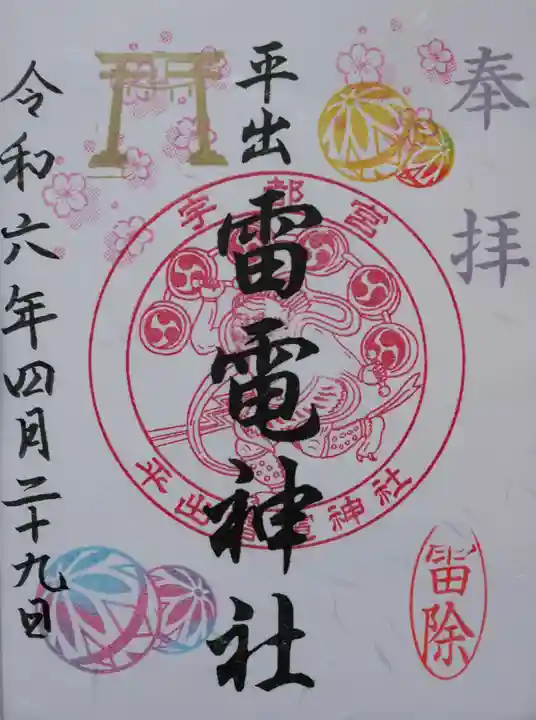 奉拝
平出
雷電神社
宇都宮
平出雷電神社
雷除
令和六年四月二十九日